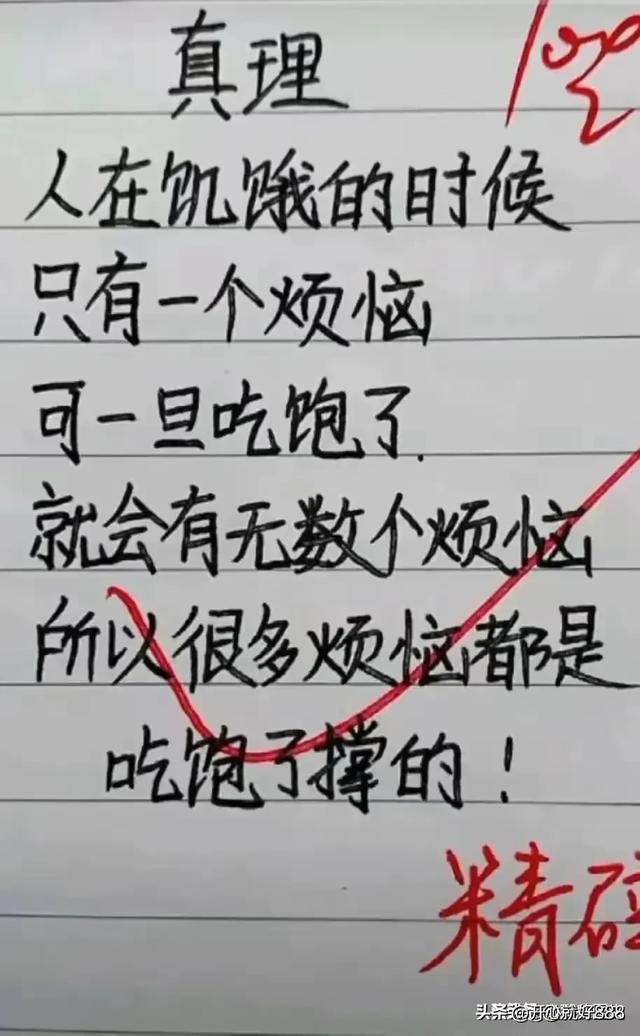 真理
人在饥饿的时候
只有一个烦恼
可一旦吃饱了.
就会有无数个烦恼
所以很多烦恼都是
吃饱了撑的！
精
头条 @开心就好888